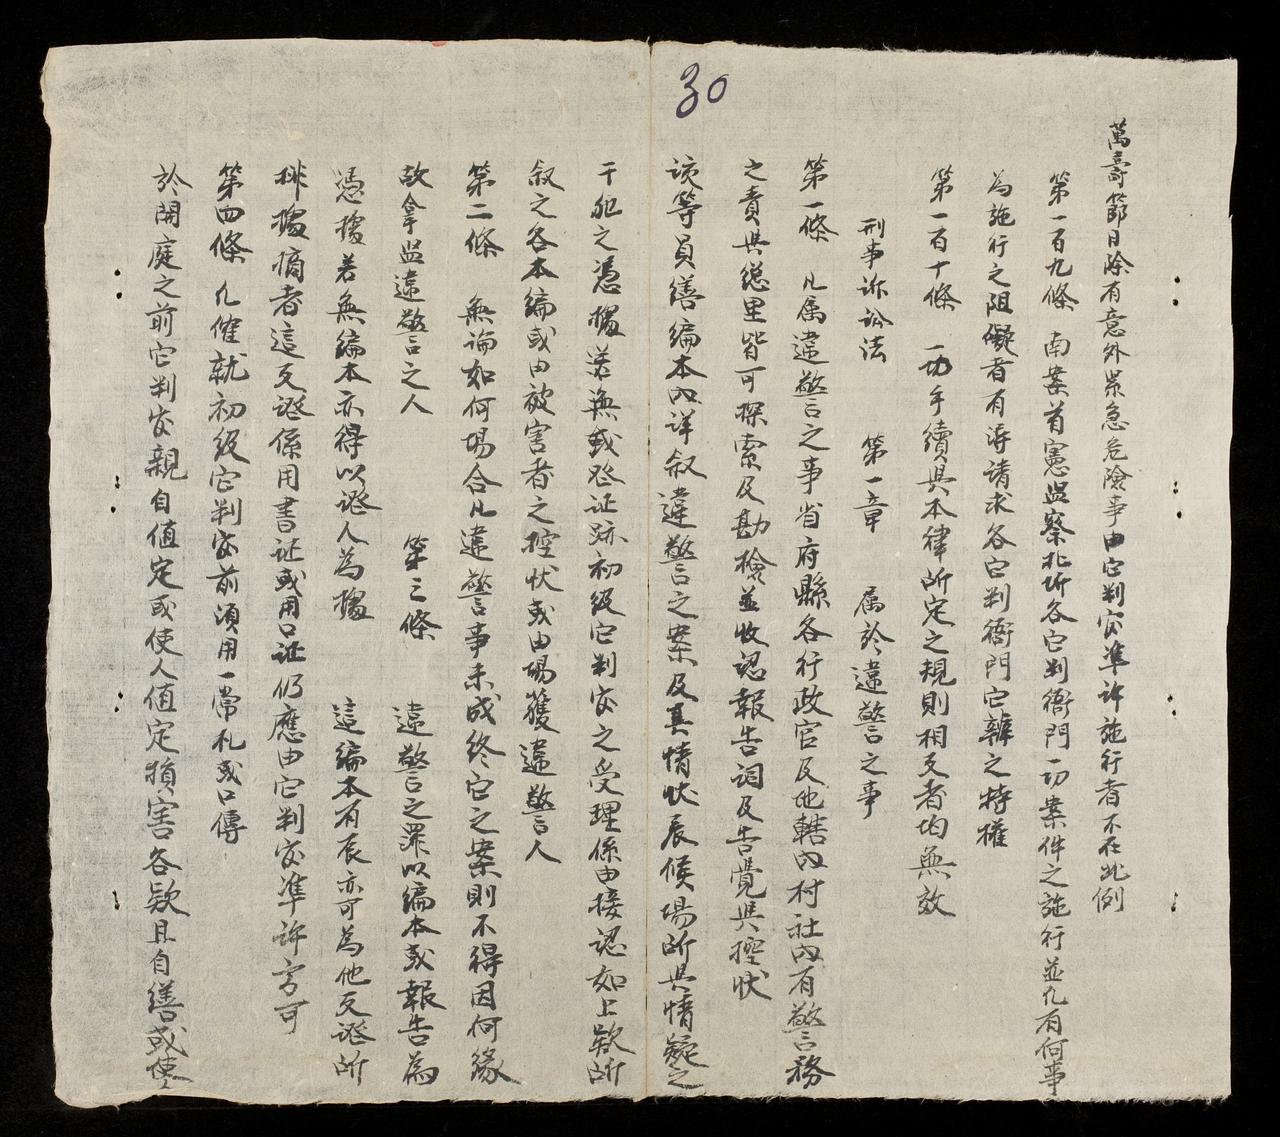 30
萬壽節日除有意外緊急危險事由宅判官準許施行者不在此例
第一百九條 南案首憲監察北圻各宅判衙門一切案件之施行並凡有何事
為施行之阻礙者有得請求各宅判衙門宅辦之特權
第一百十條 一切手續與本律所定之規則相反者均無效
刑事訴訟法 第一章 属於違警之事
第一條 凡属違警之事省府縣各行政官及他轄內村社內有警務
之責與總里皆可探索及勘檢並收認報告詞及告覺與控状
該等員繕編本內詳叙違警之案及其情状辰候場所與情疑之
干犯之憑據若無或啓证跡初級宅判官之受理係由接認如上欵所
叙之各本編或由被害者之控状或由場獲違警人
第二條 無論如何場合凡違警事未成終宅之案則不得因何緣
故拿监違警之人 第三條 違警之罪以編本或報告為
憑據若無編本亦得以證人為據 這編本有辰亦可為他反證所
排據摘者這反證係用書证或用口证仍應由宅判官準許方可
第四條 凡催就初級宅判官前須用一常札或口傳
於開庭之前宅判官親自值定或使人值定損害各欵且自繕或使人